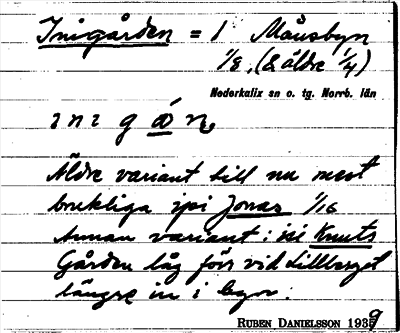 Inigården = 1 Månsbyn
1/8, (& äldre 1/4)
Nederkalix sn o. tg. Norrb. län
ı n ı g ǿ n,
Äldre variant till nu mest
brukliga ipi Jonas 1/16
Annan variant: isi Knuts
Gården låg förr vid Lillberget
längre in i byn.
RUBEN DANIELSSON 1939